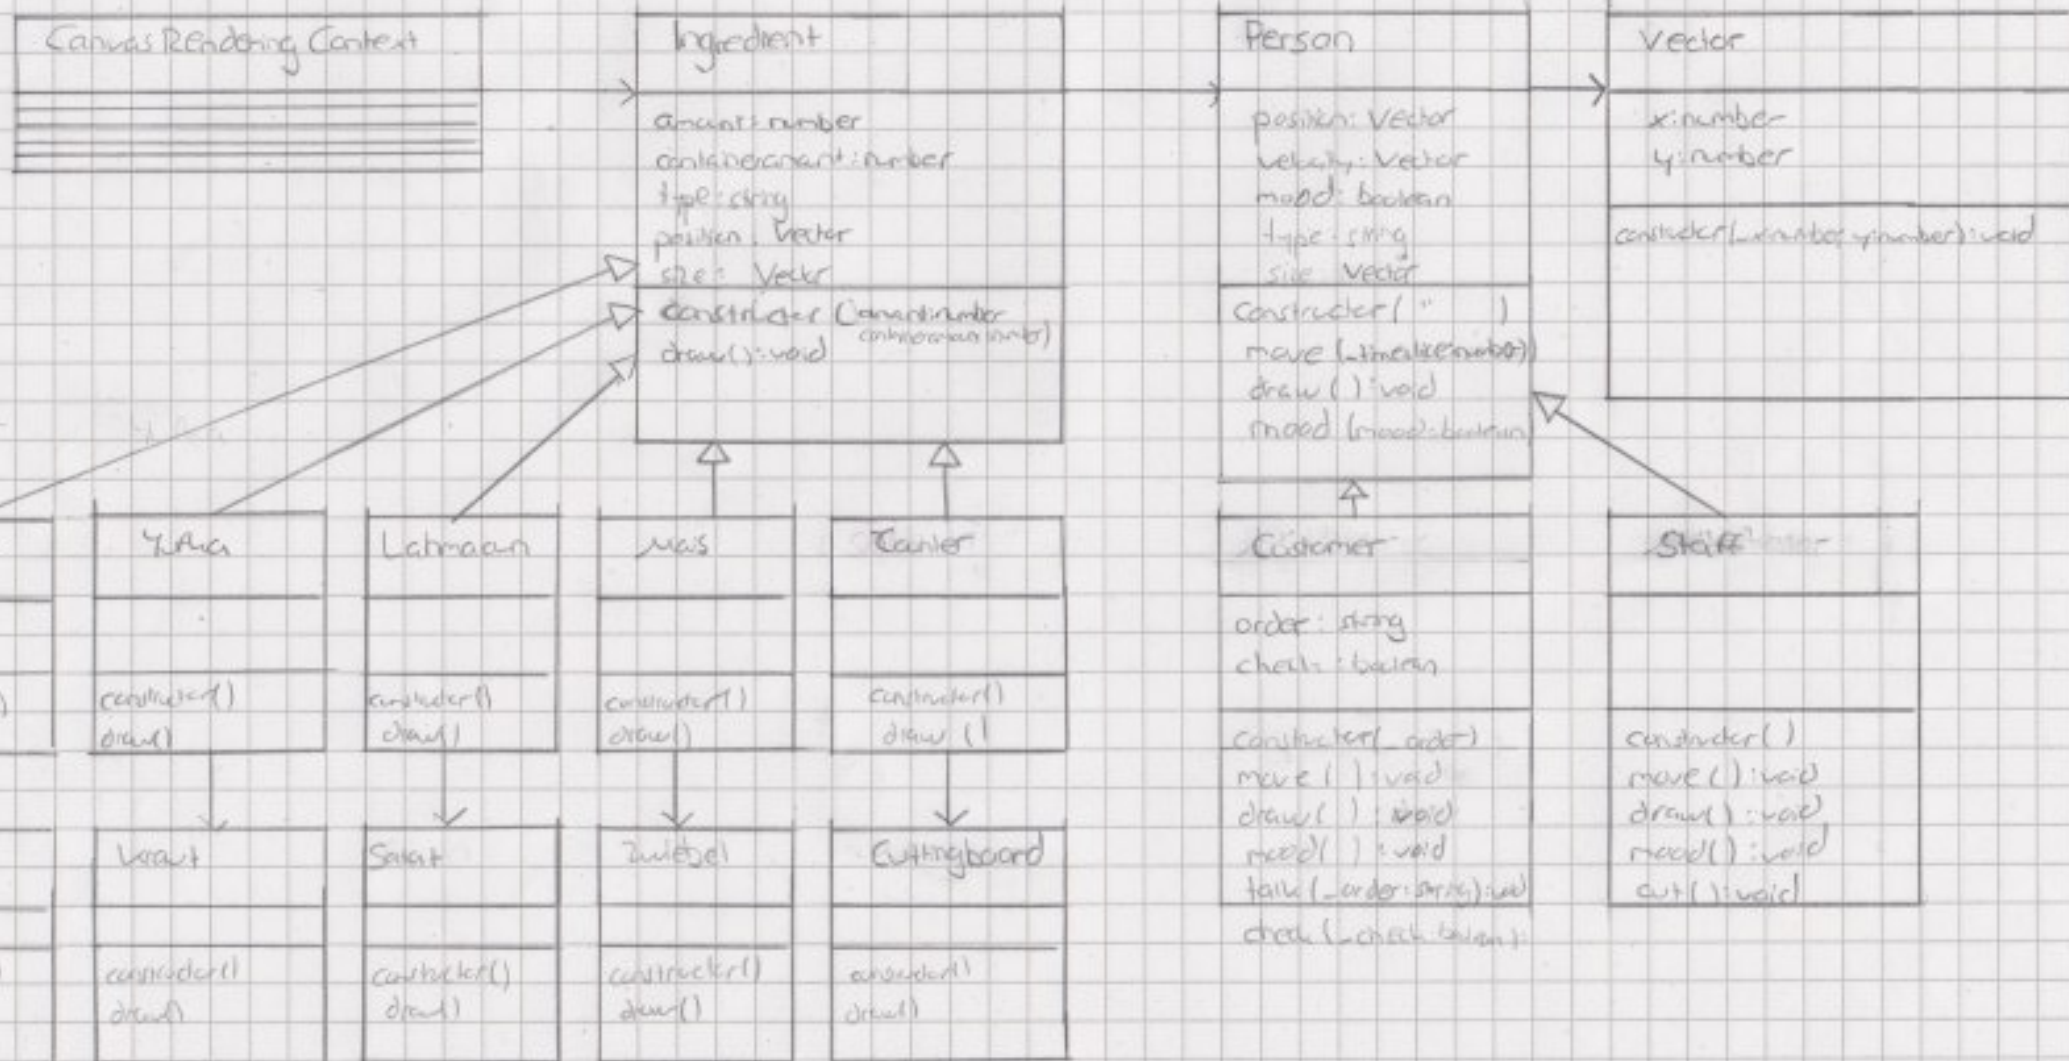 Canvas Rendering Context
Ingredient
amount: number
containeramount: number
type: string
position: Vector
size: Vector
draw(): void
Person
position: Vector
velocity: Vector
mood: boolean
type: string
size: Vector
constructor( " )
move (_timeslice: number)
draw ( ): void
mood (mood: boolean)
Vector
x: number
y: number
Yufka
constructor()
draw()
Lahmacun
constructor()
draw()
Mais
constructor()
draw()
constructor()
draw ()
Customer
order: string
check: boolean
constructor(_order)
move ( ): void
draw ( ): void
mood( ): void
talk (_order: string): void
check (_check: boolean):
Staff
constructor( )
move ( ): void
draw( ): void
mood( ): void
cut( ): void
Kraut
constructor()
draw()
Salat
constructor()
draw()
Zwiebel
constructor()
draw()
Cuttingboard
constructor()
draw()